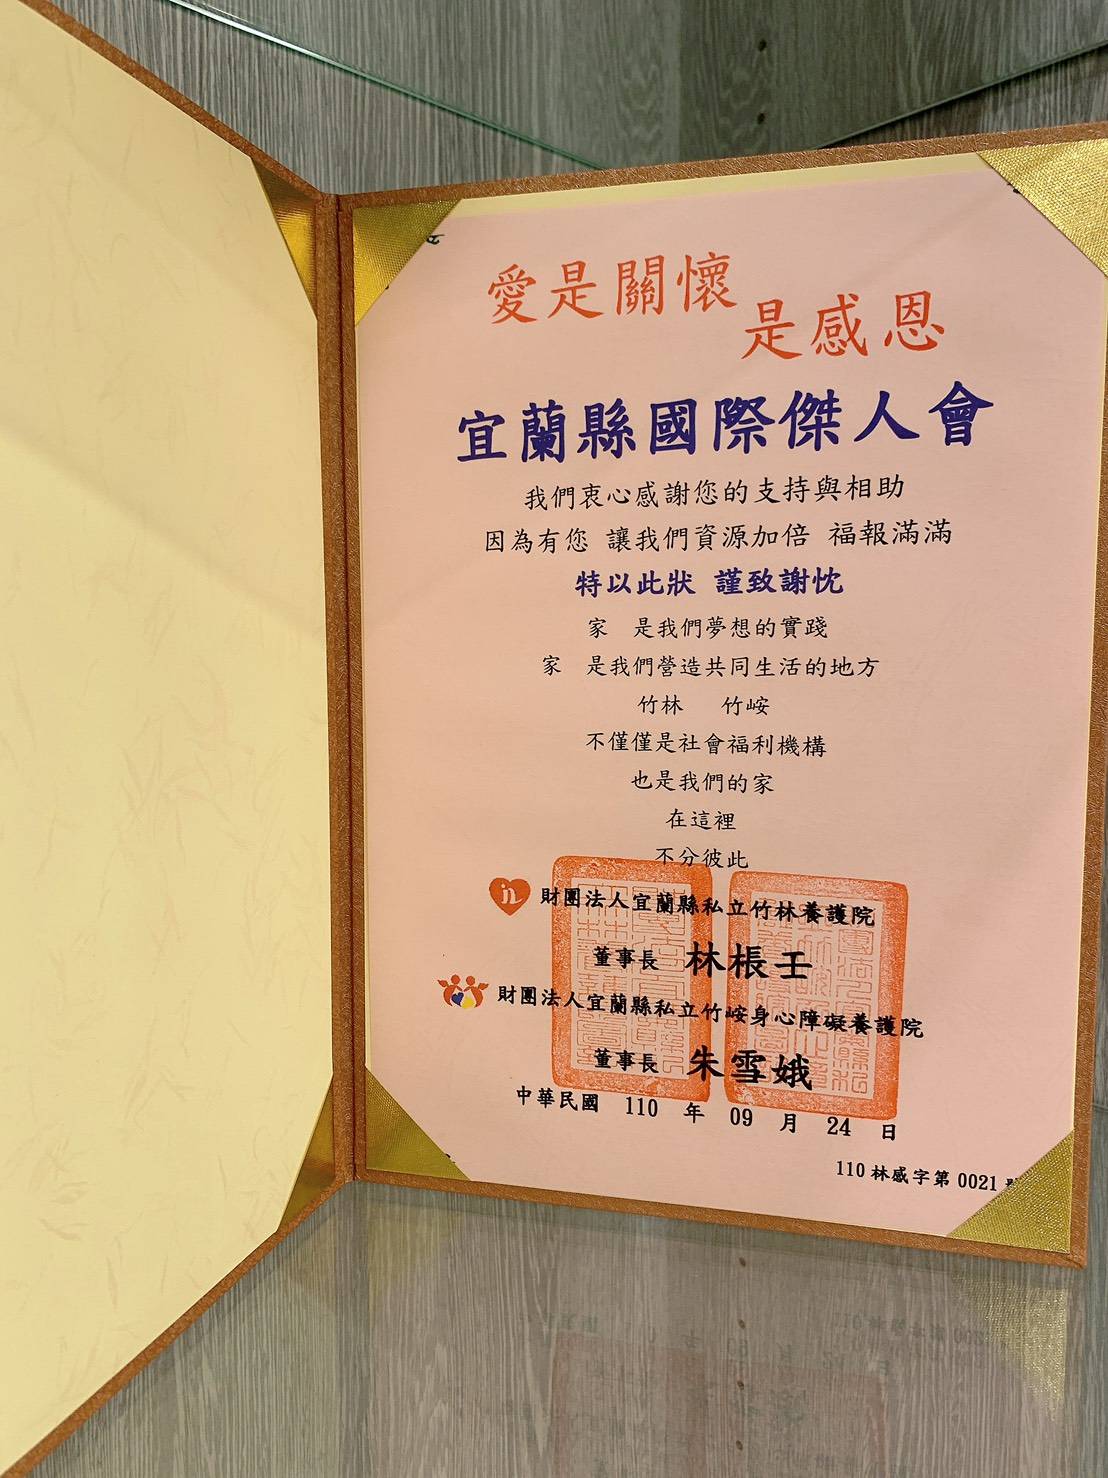 愛是關懷
是感恩
宜蘭縣國際傑人會
我們衷心感謝您的支持與相助
因為有您 讓我們資源加倍 福報滿滿
特以此狀 謹致謝忱
家 是我們夢想的實踐
家 是我們營造共同生活的地方
竹林 竹峖
不僅僅是社會福利機構
也是我們的家
在這裡
不分彼此
財團法人宜蘭縣私立竹林養護院
董事長 林棖壬
財團法人宜蘭縣私立竹峖身心障礙養護院
董事長 朱雪娥
中華民國 110 年 09 月 24 日
110 林感字第 0021 號